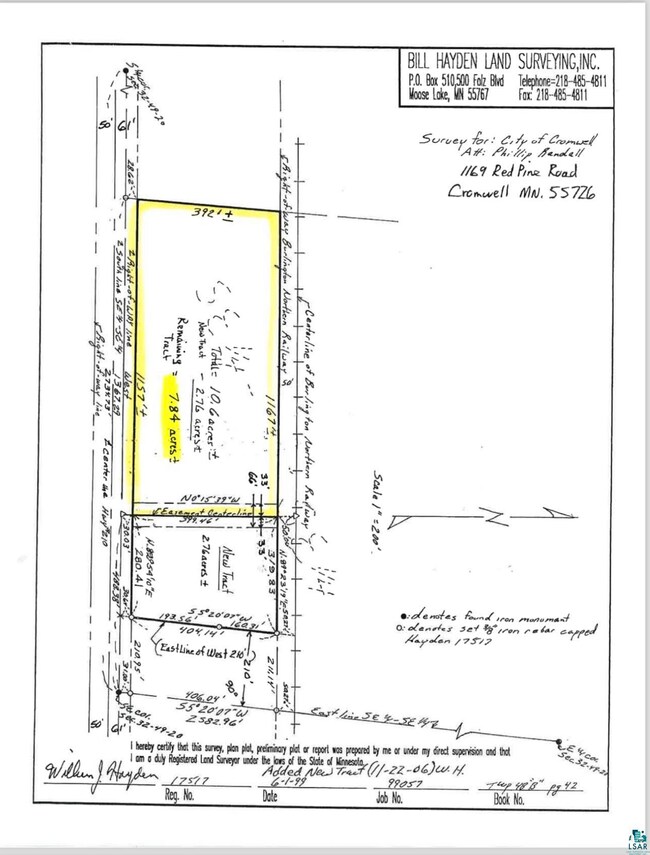 BILL HAYDEN LAND SURVEYING,INC.
P.O. Box 510,500 Folz Blvd Telephone=218-485-4811
Moose Lake, MN 55767 Fax: 218-485-4811
Survey for: City of Cromwell
Att: Phillip Bendall
1169 Red Pine Road
Cromwell MN. 55726
50' 61'
392'±
Right-of-way Burlington Northern Railway
Centerline of Burlington Northern Railway
Right-of-way line
South line SE¼-SE¼
1367.29
West
1157'±
1167'±
Total= 10.6 acres±
New Tract - 2.76 acres±
Remaining Tract = 7.84 acres±
Right-of-way line
2731.73'
Center line Hwy #210
33'
66'
N0°15'39"W
Easement Centerline
399.46'
33'
50'
280.41
New Tract
2.76 acres±
319.83
193.56'
S5°20'07"W
160.31'
404.14'
(East Line of West 210')
210.95'
210'
211.14'
90°
406.04'
S5°20'07"W
2582.96'
East line SE¼-SE¼
SE cor.
Sec. 32-49-20
E¼ cor.
Sec. 32-49-20
50' 61'
Scale 1"=200'
N
●:denotes found iron monument
○:denotes set 5/8" iron rebar capped
Hayden 17517
I hereby certify that this survey, plan plat, preliminary plat or report was prepared by me or under my direct supervision and that
I am a duly Registered Land Surveyor under the laws of the State of Minnesota.
Added New Tract (11-22-06) W.H.
William J. Hayden 17517 6-1-99 99057 Twp 48 "B" pg 42
Reg. No. Date Job No. Book No.
LSAR